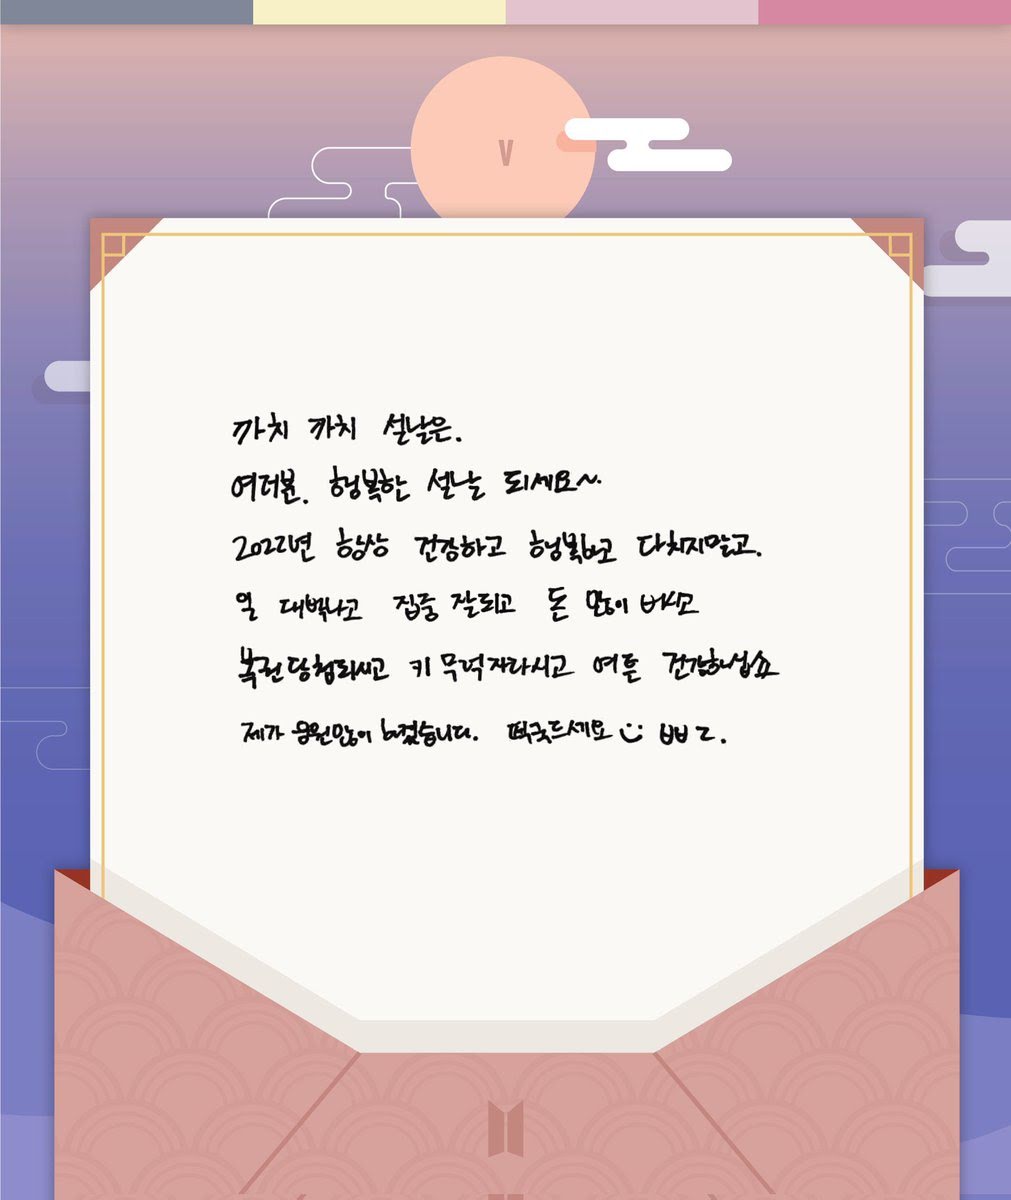 V
까치 까치 설날은.
여러분. 행복한 설날 되세요~
2022년 항상 건강하고 행복하고 다치지말고.
일 대박나고 집중 잘되고 돈 많이 버시고
복권당첨되시고 키 무럭자라시고 여튼 건강하십쇼
제가 응원많이 하겠습니다. 떡국드세요 ㅃㅃㄹ.